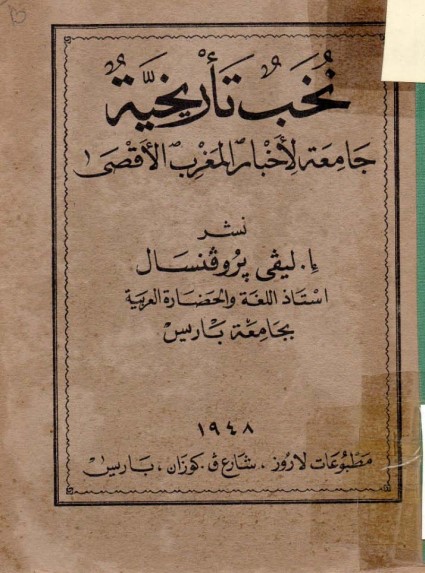 نُخَبٌ تَأْرِيخِيَّةٌ
جَامِعَة لِأَخْبَار المَغْرِب الأَقْصَى
نشر
إ. ليڤي پروڤنسال
استاذ اللغة والحضارة العربية
بجامعة باريس
١٩٤٨
مطبوعات لاروز، شارع ڤ. كوزان، باريس